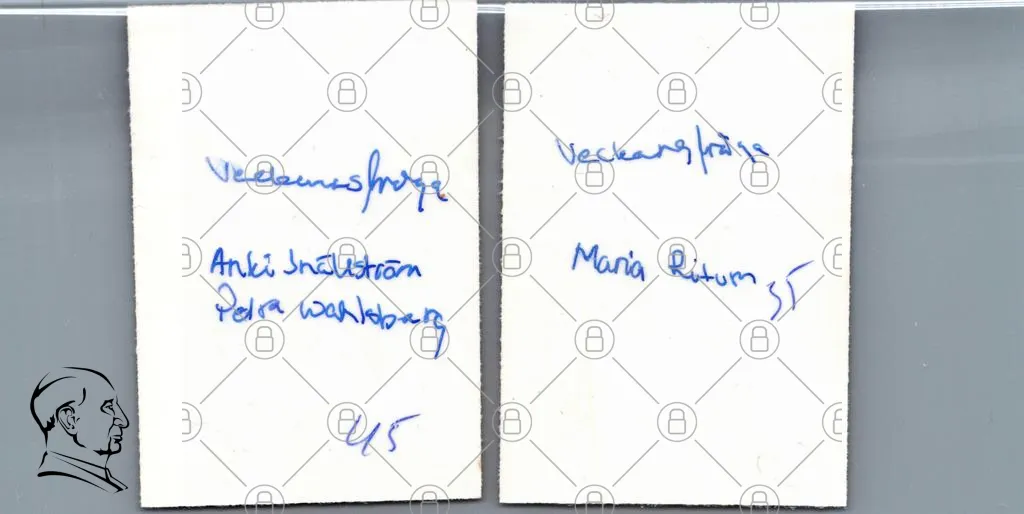 Veckansfråga
Anki Snällström
Petra Wahlsberg
45
Veckansfråga
Maria Riturn 35